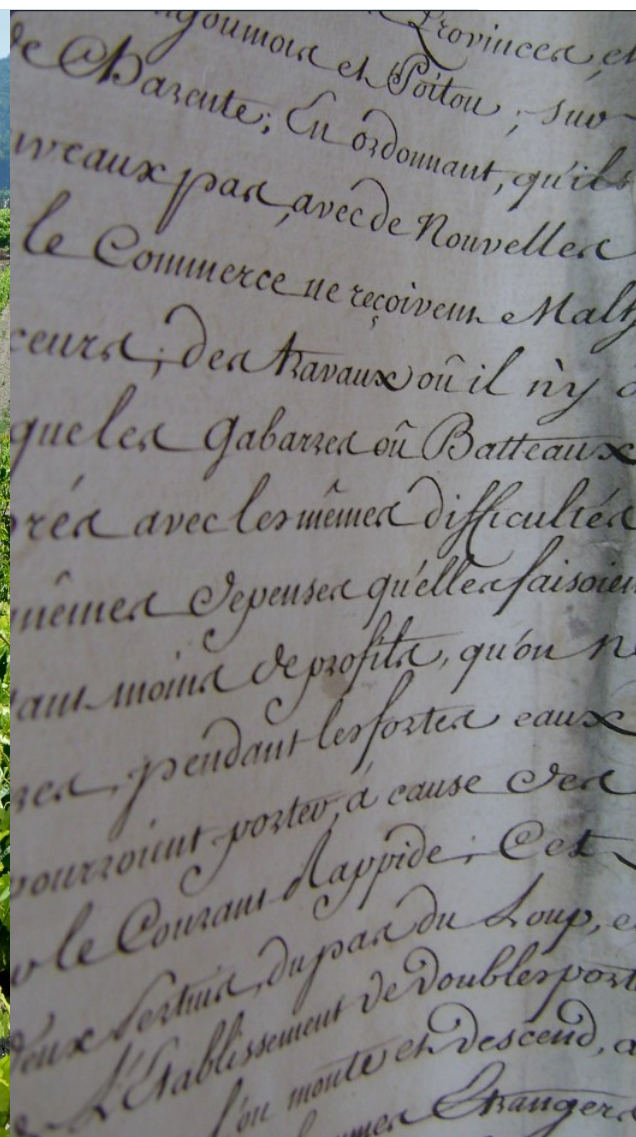 goumois et Poitou ; sur
Provinces, et
de Charente ; En ordonnant, qu'ils
uveaux pas, avec de Nouvelles
le Commerce ne reçoivent
ceurs ; des travaux où il n'y
que les Gabarres où Batteaux
avec les mêmes difficultés
mêmes depenses qu'elles faisoien
tant moins de profits, qu'on n
res, pendant les fortes eaux
pourroient porter, à cause des
le Courant Rappide ; Cet
deux Pertuis, du pas du Loup, e
L'Etablissement de doubles port
l'on monte et descend, a
Etrangers